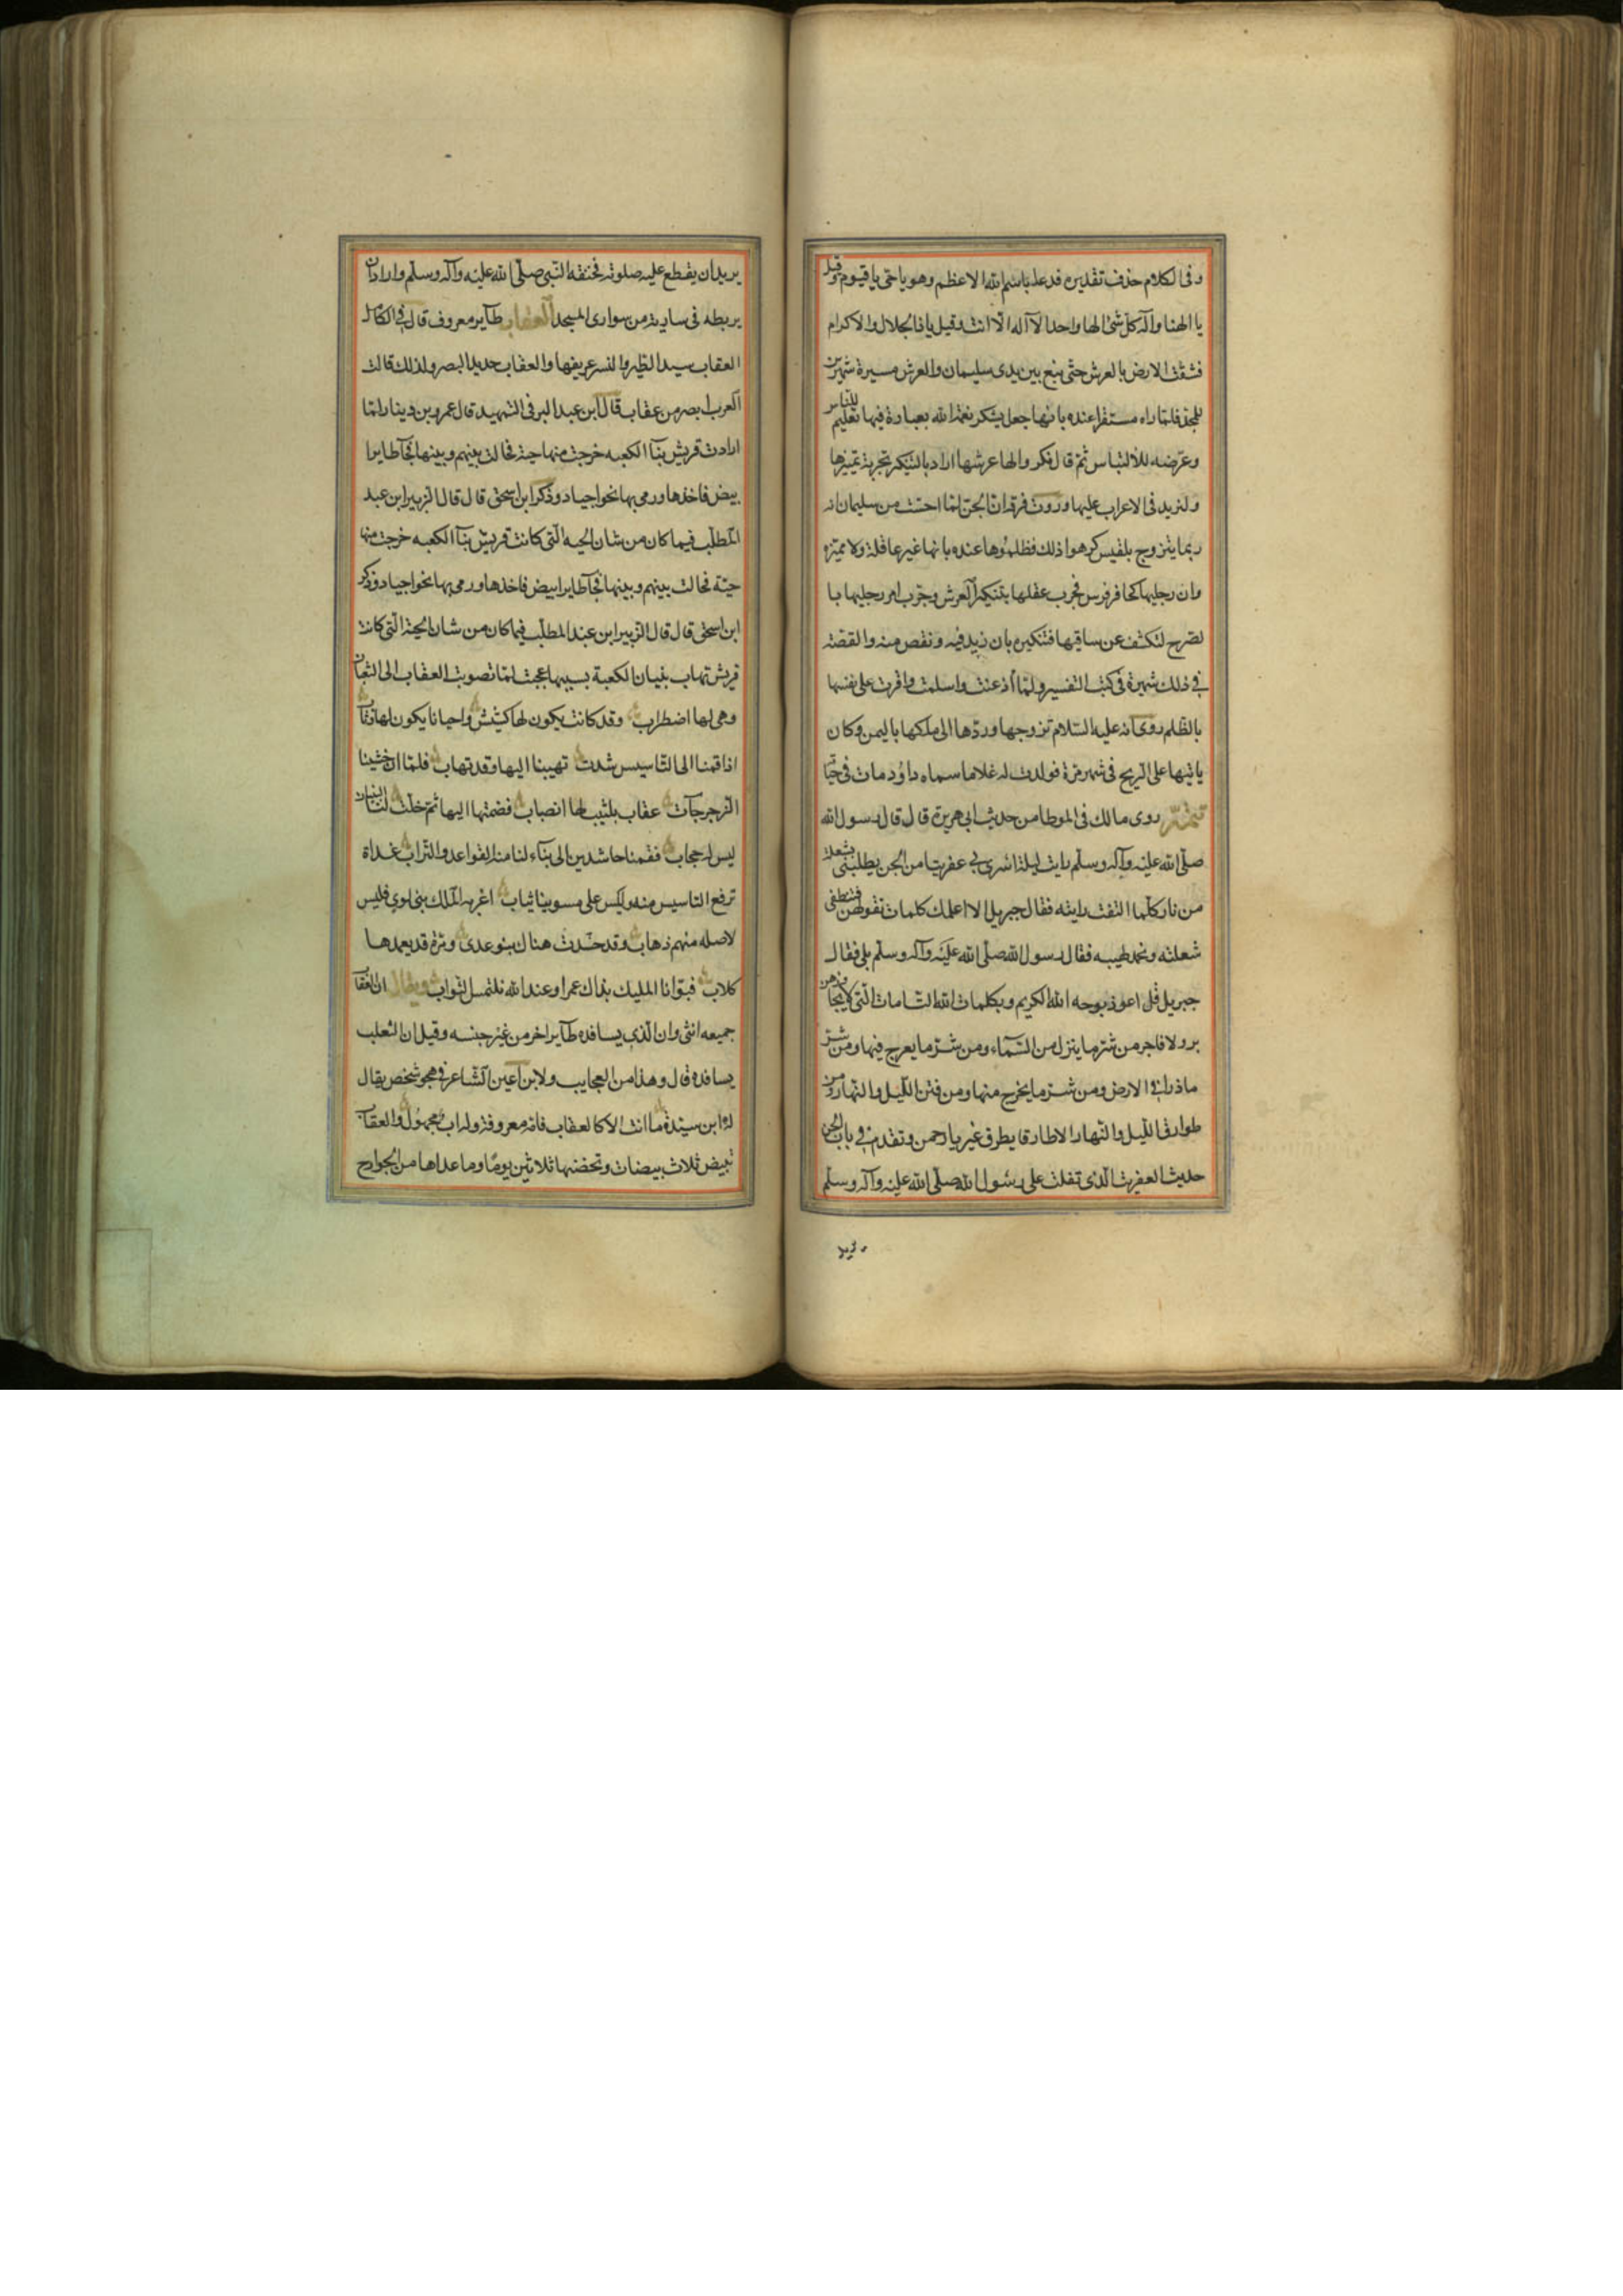 وفى الكلام حذف تقديره فدعا باسم الله الاعظم وهو يا حى يا قيوم وقيل
يا الهنا واله كل شئ الها واحدا لا اله الا انت وقيل يا ذا الجلال والاكرام
فشقت الارض بالعرش حتى نبع بين يدى سليمان والعرش مسيرة شهرين
للمجد فلما راه مستقرا عنده جعل يشكر نعمة الله بعبارة فيها تعليم للناس
وعرضه للالتباس ثم قال نكروا لها عرشها اراد بالتنكير تجربة تميزها
ولنزيد فى الاعراب عليها وروت فرقة ان الجن لما احست من سليمان انه
ربما يتزوج بلقيس كرهوا ذلك فظلموها عنده بانها غير عاقلة ولا مميزة
وان رجليها كحافر فرس فجرب عقلها بتنكير العرش وجرب امر رجليها با
لصرح لتكشف عن ساقيها فتنكيره بان زيد فيه ونقص منه والقصة
فى ذلك شهيرة فى كتب التفسير ولما اذعنت واسلمت واقرت على نفسها
بالظلم روى انه عليه السلام تزوجها وردها الى ملكها باليمن وكان
ياتيها على الريح فى شهر مرة فولدت له غلاما سماه داؤد مات فى حيا
روى مالك فى الموطا من حديث ابى هريرة قال قال رسول الله
صلى الله عليه وآله وسلم رايت ليلة اسرى بى عفريتا من الجن يطلبنى بشعلة
من نار كلما التفت رايته فقال جبريل الا اعلمك كلمات تقولهن فتنطفى
شعلته وقال رسول الله صلى الله عليه وآله وسلم بلى فقال
جبريل قل اعوذ بوجه الله الكريم وبكلمات الله التامات التى لا يجاوزهن
بر ولا فاجر من شر ما ينزل من السماء ومن شر ما يعرج فيها ومن شر
ما ذرا فى الارض ومن شر ما يخرج منها ومن فتن الليل والنهار ومن
طوارق الليل والنهار الا طارقا يطرق بخير يا رحمن وتقدم فى باب الجن
حديث العفريت الذى تفلت على رسول الله صلى الله عليه وآله وسلم
يريد
يريد ان يقطع عليه صلوته فخنقه النبى صلى الله عليه وآله وسلم واراد ان
يربطه فى سارية من سوارى المسجد العقاب طاير معروف قال فى الكامل
العقاب سيد الطير والنسر عريفها والعقاب حديد البصر ولذلك قالت
العرب ابصر من عقاب قال ابن عبد البر فى التمهيد قال عمرو بن دينار لما
ارادت قريش بنآ الكعبه خرجت منها حية فحالت بينهم وبينها فجآ طاير
ابيض فاخذها ورمى بها نحو اجياد وذكر ابن اسحق قال قال الزبير ابن عبد
المطلب فيما كان من شان الحيه التى كانت قريش بنآ الكعبه خرجت منها
حية فحالت بينهم وبينها فجآ طاير ابيض فاخذها ورمى بها نحو اجياد وذكر
ابن اسحق قال قال الزبير ابن عبد المطلب فيما كان من شان الحية التى كانت
قريش تهاب بنيان الكعبة بسببها عجبت لما تصوبت العقاب الى الثعبان
وهى لها اضطراب وقد كانت يكون لها كشيش واحيانا يكون لها وثاب
اذا قمنا الى التاسيس شدت تهيبنا اليها وقد تهاب فلما ان خشينا
الزجر جآت عقاب لها انصباب فضمتها اليها ثم خلت لنا البنيان
ليس له حجاب فقمنا حاشدين الى بناء لنا منه القواعد والتراب غداة
ترفع التاسيس منه وليس على مسوينا ثياب اعز به المليك بنى لوى فليس
لاصله منهم ذهاب وقد حشدت هناك بنو عدى ومرة قد يعمدها
كلاب فبوانا المليك بذاك عزا وعند الله نلتمس الثواب ويقال ان العقاب
جميعه انثى وان الذى يسافده طاير اخر من غير جنسه وقيل ان الثعلب
يسافده قال وهذا من العجايب ولابن اعين الشاعر فى هجو شخص يقال
له ابن سيده ما انت الا كالعقاب فامه معروفة وله اب مجهول والعقاب
تبيض ثلاث بيضات وتحضنها ثلاثين يوما وما عداها من الجوارح